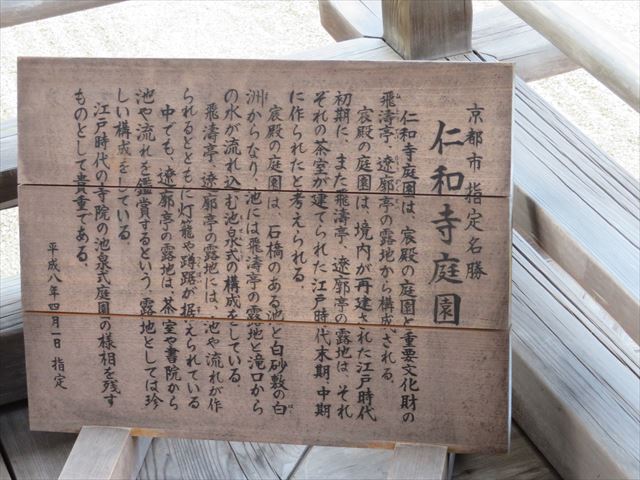 京都市指定名勝
仁和寺庭園
仁和寺庭園は、宸殿の庭園と重要文化財の
飛濤亭、遼廓亭の露地から構成される。
宸殿の庭園は、境内が再建された江戸時代
初期に、また飛濤亭、遼廓亭の露地は、それ
ぞれの茶室が建てられた江戸時代末期、中期
に作られたと考えられる。
宸殿の庭園は、石橋のある池と白砂敷の白
洲からなり、池には飛濤亭の露地と滝口から
の水が流れ込む池泉式の構成をしている。
飛濤亭、遼廓亭の露地には、池や流れが作
られるとともに灯籠や蹲踞が据えられている。
中でも、遼廓亭の露地は、茶室や書院から
池や流れを鑑賞するという、露地としては珍
しい構成をしている。
江戸時代の寺院の池泉式庭園の様相を残す
ものとして貴重である。
平成八年四月一日 指定